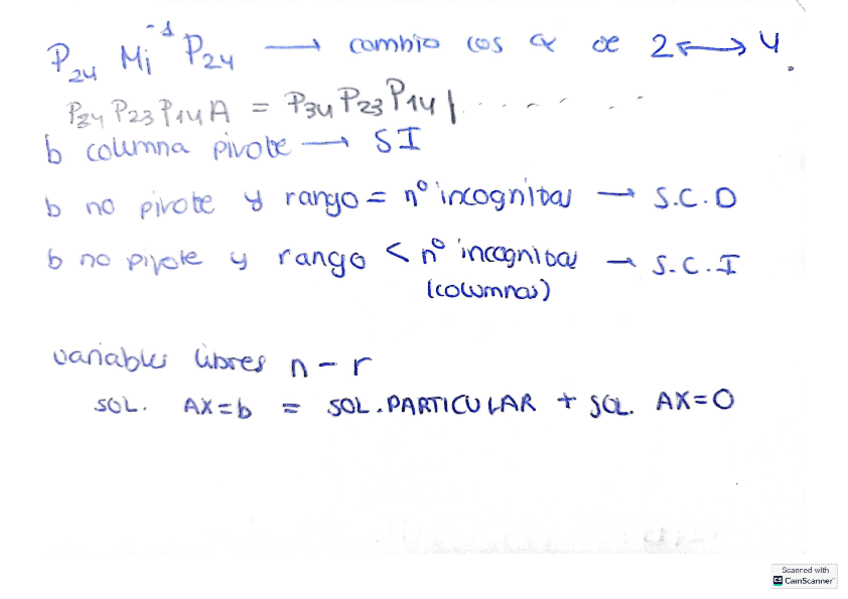 P₂₄ Mᵢ⁻¹ P₂₄ → cambio los α de 2 ↔ 4.
P₃₄ P₂₃ P₁₄ A = P₃₄ P₂₃ P₁₄ | . . . . . .
b columna pivote → SI
b no pivote y rango = nº incognitas → S.C.D
b no pivote y rango < nº incognitas → S.C.I
(columnas)
variables libres n - r
SOL. AX=b = SOL. PARTICULAR + SOL. AX=0
Scanned with
CS CamScanner